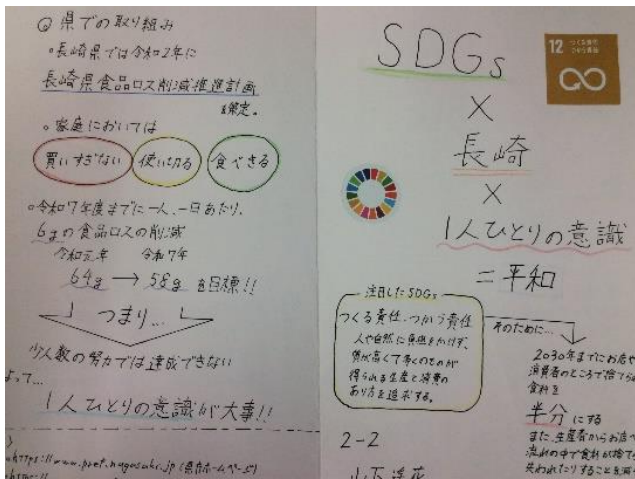 ◎ 県での取り組み
・長崎県では令和2年に
長崎県食品ロス削減推進計画
を策定。
・家庭においては
買いすぎない 使い切る 食べきる
・令和7年度までに一人、一日あたり、
6gの食品ロスの削減
令和元年 令和7年
64g → 58g を目標!!
つまり...
少人数の努力では達成できない
よって...
1人ひとりの意識が大事!!
SDGs
×
長崎
×
1人ひとりの意識
=平和
12 つくる責任
つかう責任
注目したSDGs
つくる責任、つかう責任
人や自然に負担をかけず、
質が高くて多くのものが
得られる生産と消費の
あり方を追求する。
そのために...
2030年までにお店や
消費者のところで捨てら
食料を
半分にする
また、生産者からお店へ
流れの中で食料が捨て
失われたりすることを減
2-2